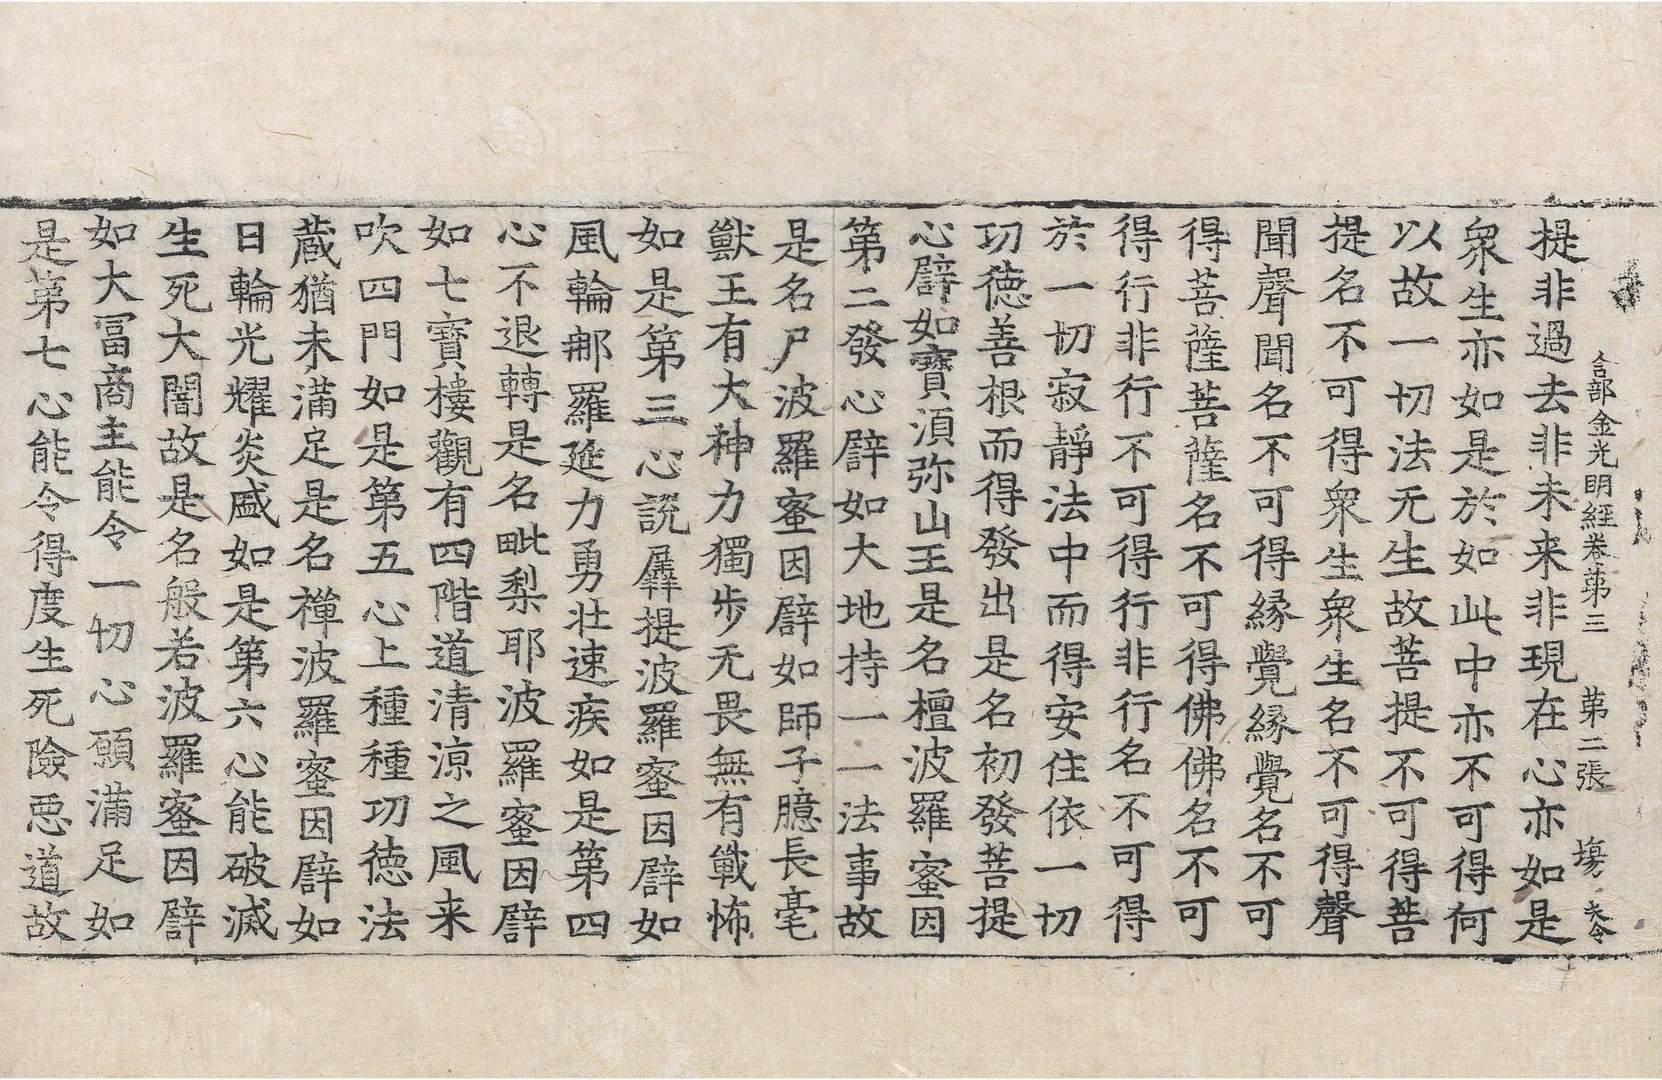 合部金光明經卷第三 第二張 塲
提非過去非未来非現在心亦如是
衆生亦如是於如此中亦不可得何
以故一切法无生故菩提不可得菩
提名不可得衆生衆生名不可得聲
聞聲聞名不可得縁覺縁覺名不可
得菩薩菩薩名不可得佛佛名不可
得行非行不可得行非行名不可得
於一切寂靜法中而得安住依一切
功德善根而得發出是名初發菩提
心譬如寶湏弥山王是名檀波羅蜜因
第二發心譬如大地持一一法事故
是名尸波羅蜜因譬如師子臆長毫
獸王有大神力獨步无畏無有戰怖
如是第三心說羼提波羅蜜因譬如
風輪那羅延力勇壮速疾如是第四
心不退轉是名毗梨耶波羅蜜因譬
如七寶樓觀有四階道清涼之風来
吹四門如是第五心上種種功德法
蔵猶未滿足是名禪波羅蜜因譬如
日輪光耀炎盛如是第六心能破滅
生死大闇故是名般若波羅蜜因譬
如大冨商主能令一切心願滿足如
是第七心能令得度生死險惡道故